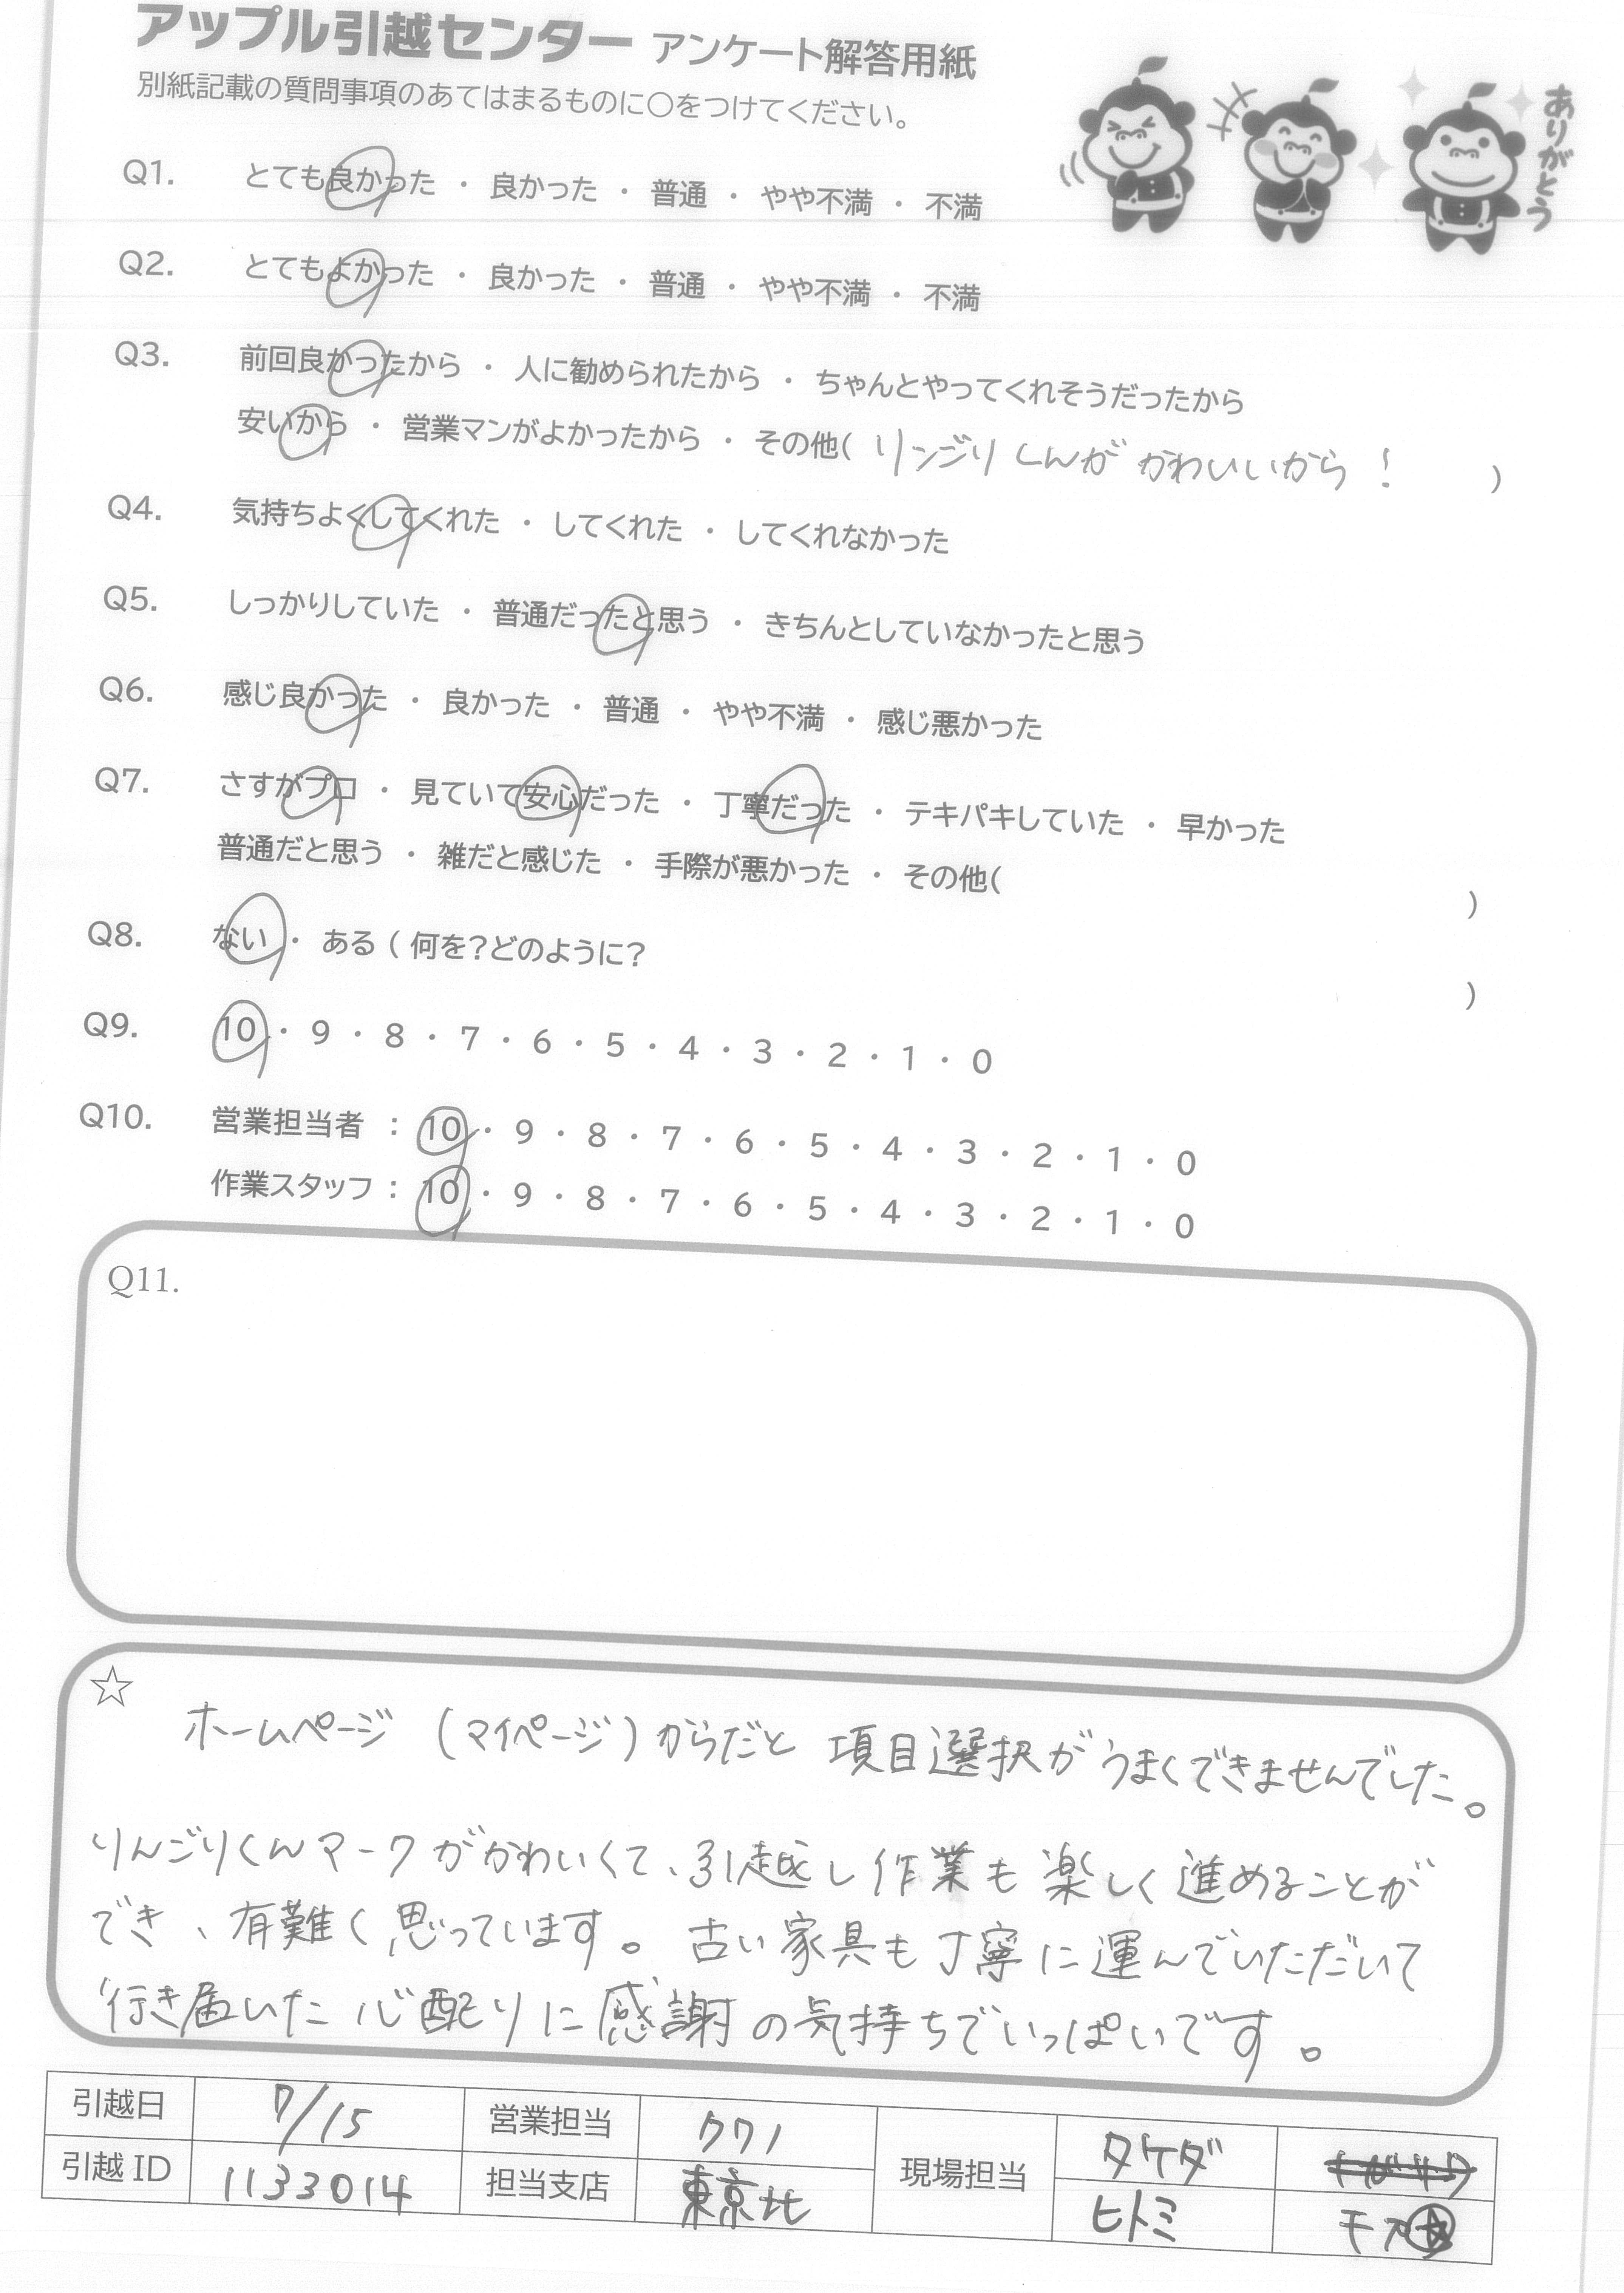 アップル引越センター アンケート解答用紙
別紙記載の質問事項のあてはまるものに○をつけてください。
ありがとう
Q1. とても良かった ・ 良かった ・ 普通 ・ やや不満 ・ 不満
Q2. とてもよかった ・ 良かった ・ 普通 ・ やや不満 ・ 不満
Q3. 前回良かったから ・ 人に勧められたから ・ ちゃんとやってくれそうだったから
安いから ・ 営業マンがよかったから ・ その他( リンゴリくんが かわいいから! )
Q4. 気持ちよくしてくれた ・ してくれた ・ してくれなかった
Q5. しっかりしていた ・ 普通だったと思う ・ きちんとしていなかったと思う
Q6. 感じ良かった ・ 良かった ・ 普通 ・ やや不満 ・ 感じ悪かった
Q7. さすがプロ ・ 見ていて安心だった ・ 丁寧だった ・ テキパキしていた ・ 早かった
普通だと思う ・ 雑だと感じた ・ 手際が悪かった ・ その他( )
Q8. ない ・ ある ( 何を?どのように? )
Q9. 10 ・ 9 ・ 8 ・ 7 ・ 6 ・ 5 ・ 4 ・ 3 ・ 2 ・ 1 ・ 0
Q10. 営業担当者 : 10 ・ 9 ・ 8 ・ 7 ・ 6 ・ 5 ・ 4 ・ 3 ・ 2 ・ 1 ・ 0
作業スタッフ : 10 ・ 9 ・ 8 ・ 7 ・ 6 ・ 5 ・ 4 ・ 3 ・ 2 ・ 1 ・ 0
Q11.
☆ ホームページ (マイページ)からだと 項目選択がうまくできませんでした。
りんごりくんマークがかわいくて、引越し作業も楽しく進めることが
でき、有難く思っています。古い家具も丁寧に運んでいただいて
行き届いた心配りに感謝の気持ちでいっぱいです。
引越日 7/15 営業担当 クワノ 現場担当 タケダ
引越ID 1133014 担当支店 東京北 ヒトミ